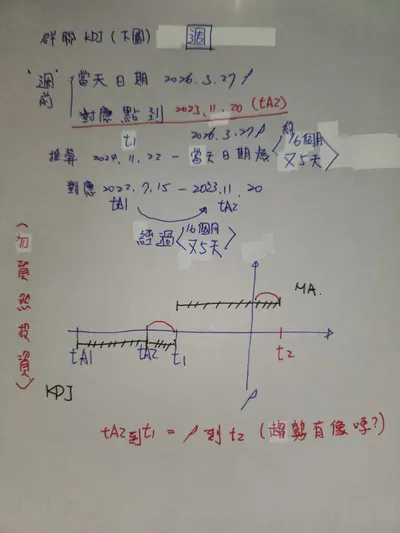 群聯 KDJ (下圖) 週
"週"前
當天日期 2026.3.27 ρ
對應點到 2023.11.20 (tA2)
t1 2026.3.27 ρ
推算 2024.11.22 - 當天日期 經 16個月又5天
對應 2022.7.15 - 2023.11.20
tA1 tA2
經過 16個月又5天
(勿貿然投資)
MA.
tA1 tA2 t1 t2
KDJ ρ
tA2到t1 = ρ到t2 (趨勢有像呼?)